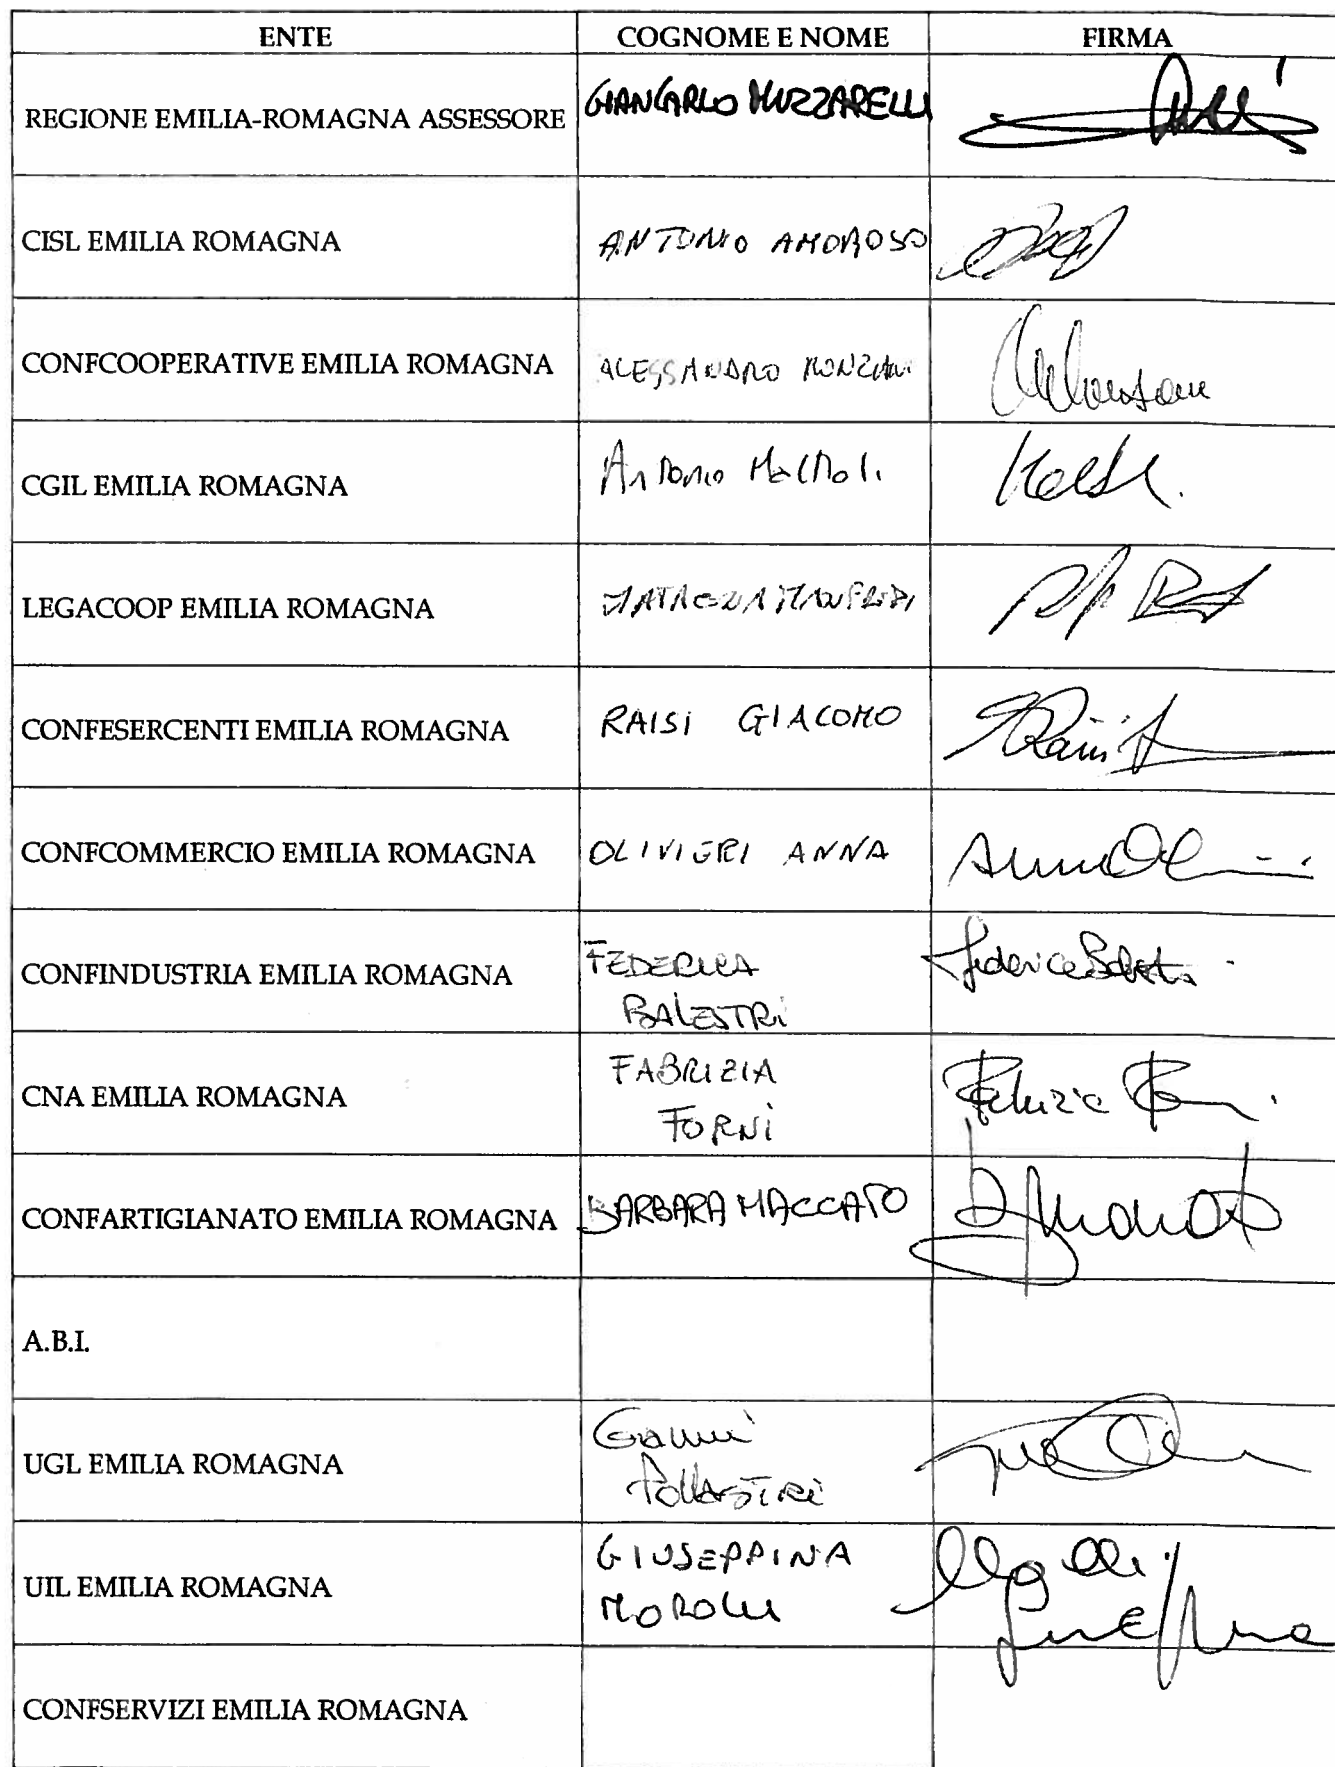 ENTE COGNOME E NOME FIRMA
REGIONE EMILIA-ROMAGNA ASSESSORE GIANCARLO MUZZARELLI
CISL EMILIA ROMAGNA ANTONIO AMOROSO
CONFCOOPERATIVE EMILIA ROMAGNA ALESSANDRO MONZANI
CGIL EMILIA ROMAGNA Antonio
LEGACOOP EMILIA ROMAGNA MANFREDI
CONFESERCENTI EMILIA ROMAGNA RAISI GIACOMO
CONFCOMMERCIO EMILIA ROMAGNA OLIVIERI ANNA
CONFINDUSTRIA EMILIA ROMAGNA FEDERICA Federica
BALESTRI
CNA EMILIA ROMAGNA FABRIZIA Fabrizia
FORNI
CONFARTIGIANATO EMILIA ROMAGNA BARBARA MACCATO
A.B.I.
UGL EMILIA ROMAGNA Gianni
Pollastri
UIL EMILIA ROMAGNA GIUSEPPINA
MOROLLI
CONFSERVIZI EMILIA ROMAGNA